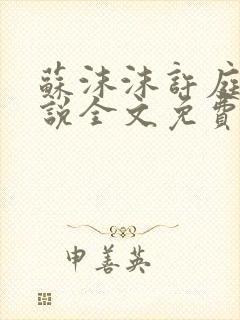 蘇沫沫許庭
說全文免費
申善英